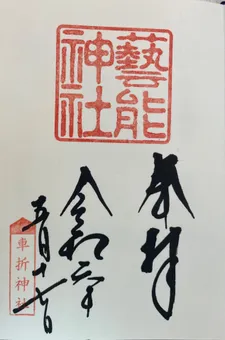 藝能
神社
奉拝
令和
五月十七日
車折神社